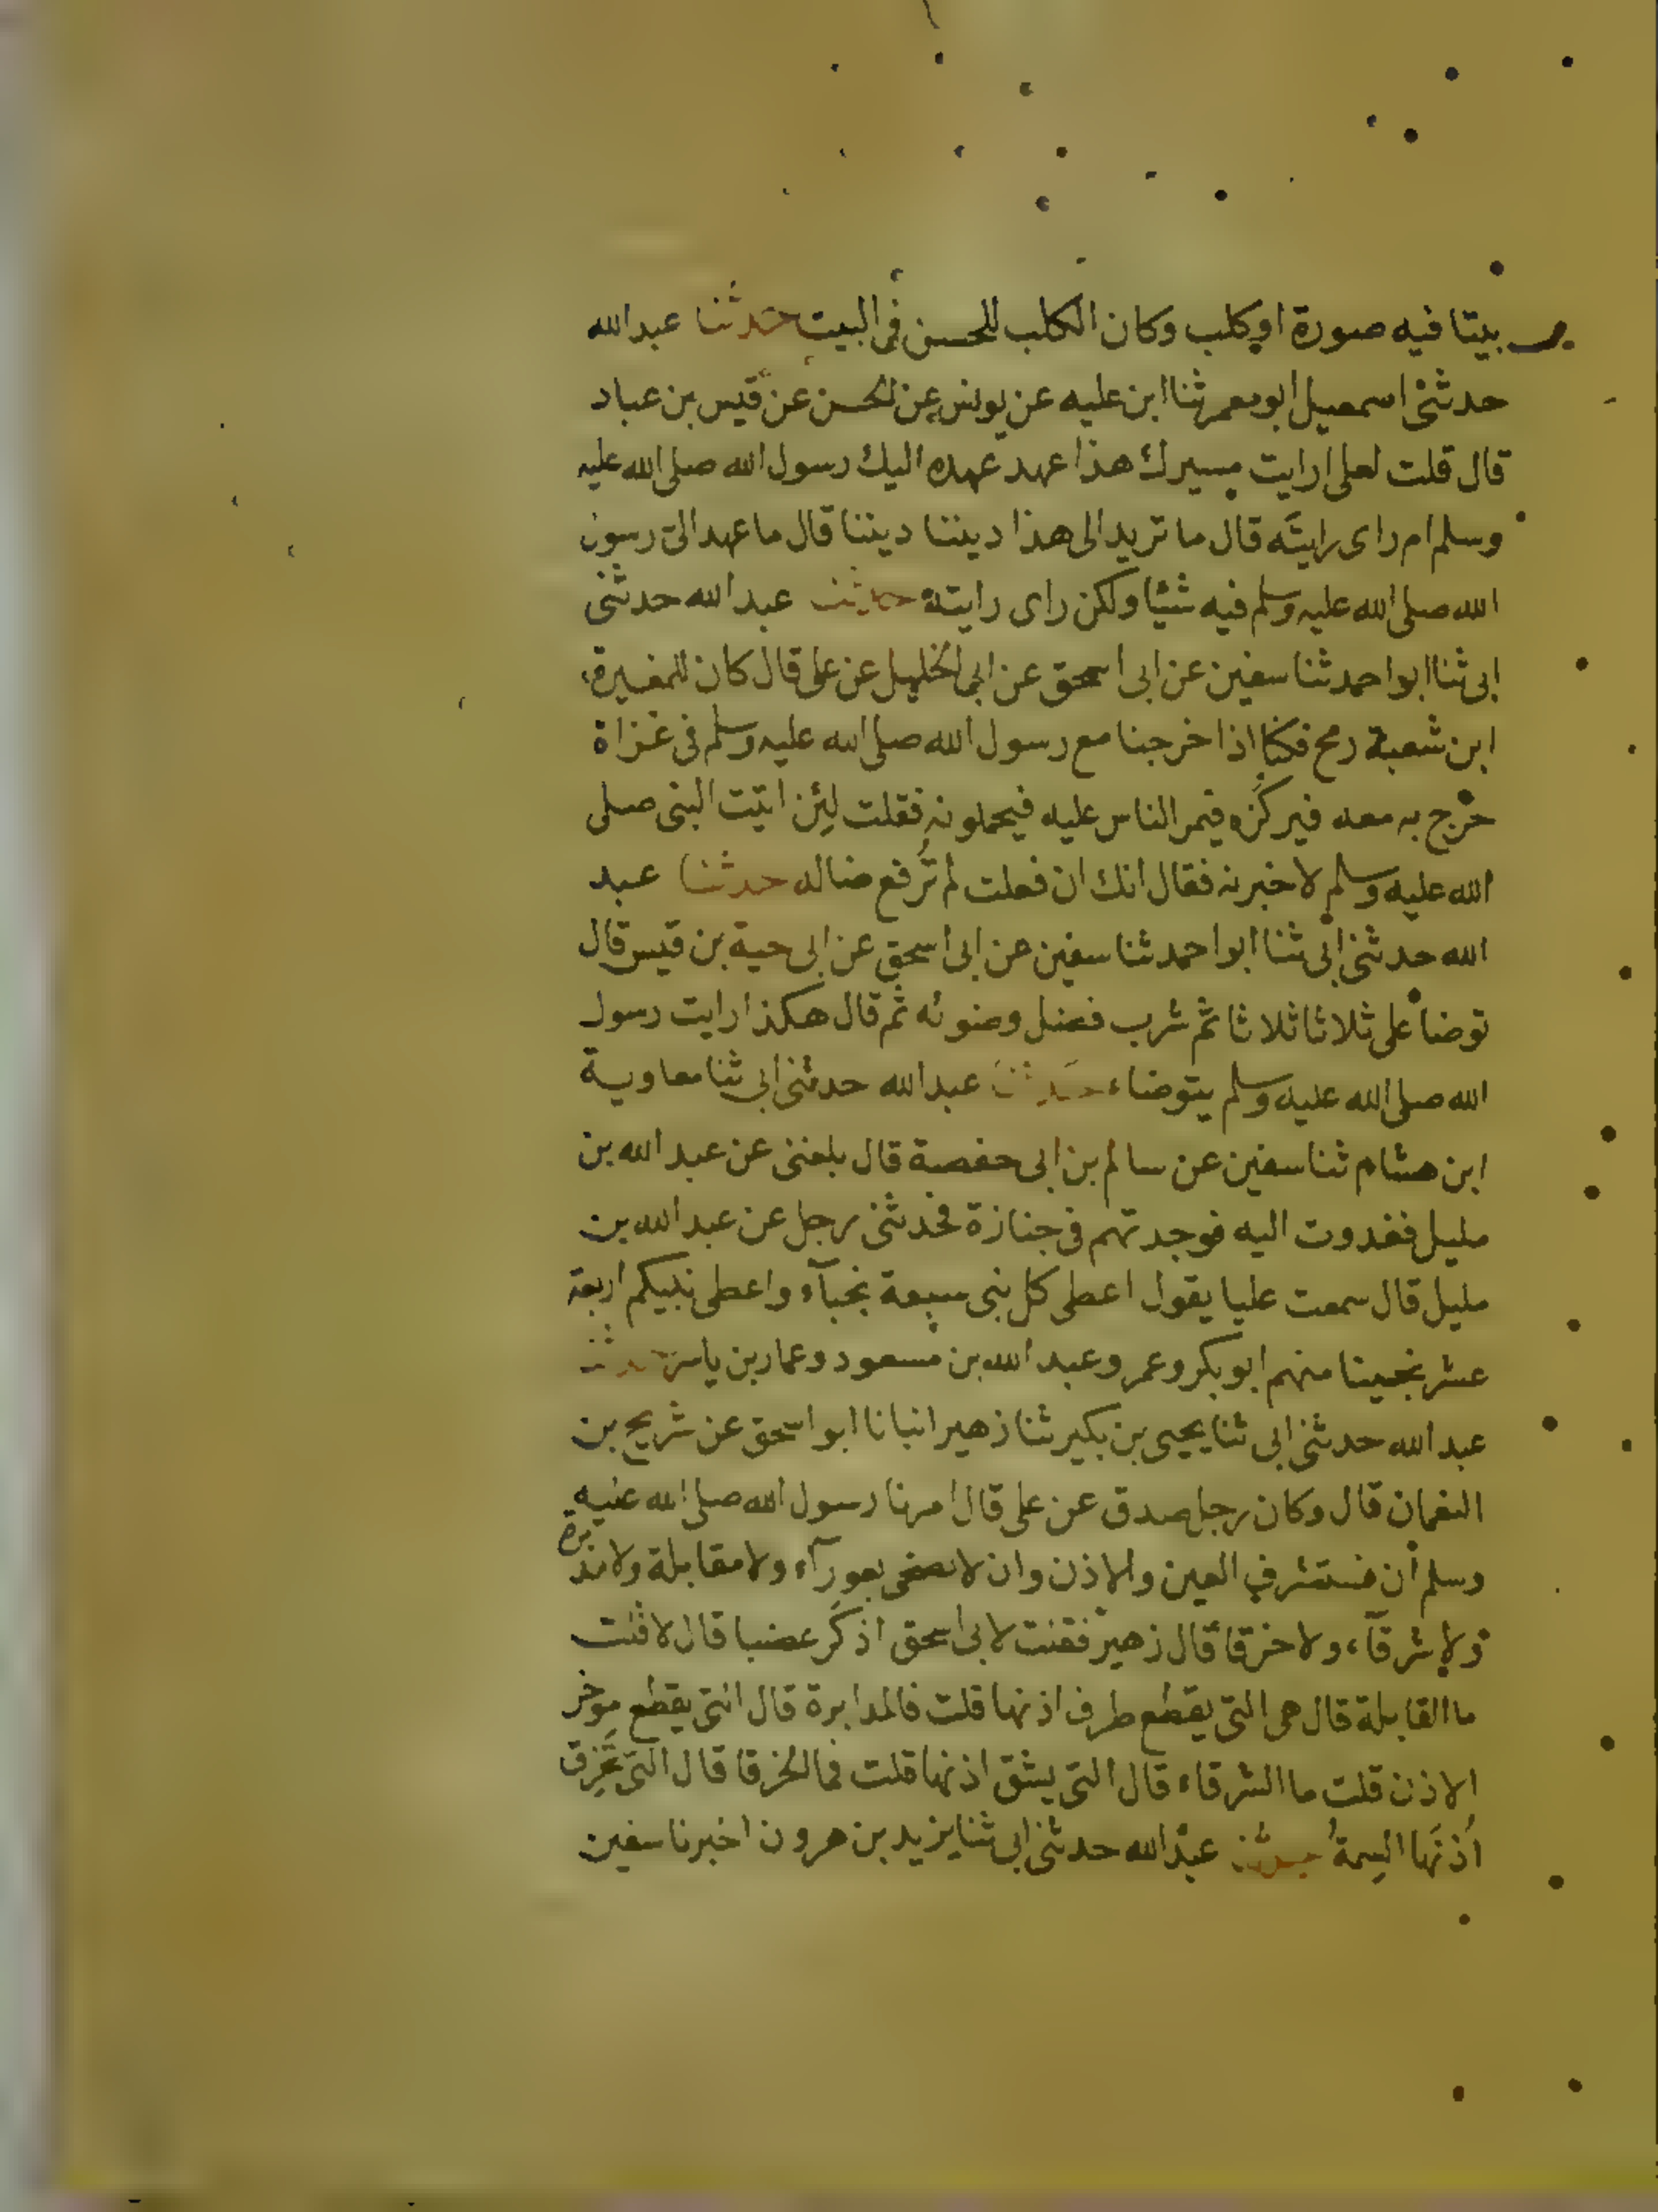 بيتا فيه صورة او كلب وكان الكلب للحسن فى البيت حدثنا عبد الله
حدثنى اسمعيل ابو معمر ثنا ابن عليه عن يونس عن الحسن عن قيس بن عباد
قال قلت لعلى ارايت مسيرك هذا عهد عهده اليك رسول الله صلى الله عليه
وسلم ام راى رايته قال ما تريد الى هذا ديننا ديننا قال ما عهد الى رسول
الله صلى الله عليه وسلم فيه شيئا ولكن راى رايته حدثنا عبد الله حدثنى
ابى ثنا ابو احمد ثنا سفين عن ابى اسحق عن ابى الخليل عن على قال كان للمغيرة
ابن شعبة رمح فكنا اذا خرجنا مع رسول الله صلى الله عليه وسلم فى غزاة
خرج به معه فيركزه فيمر الناس عليه فيحملونه فقلت لئن اتيت النبى صلى
الله عليه وسلم لاخبرنه فقال انك ان فعلت لم ترفع ضاله حدثنا عبد
الله حدثنى ابى ثنا ابو احمد ثنا سفين عن ابى اسحق عن ابى حية بن قيس قال
توضأ على ثلاثا ثلاثا ثم شرب فضل وضوئه ثم قال هكذا رايت رسول
الله صلى الله عليه وسلم يتوضاء حدثنا عبد الله حدثنى ابى ثنا معاوية
ابن هشام ثنا سفين عن سالم بن ابى حفصة قال بلغنى عن عبد الله بن
مليل فغدوت اليه فوجدتهم فى جنازة فحدثنى رجل عن عبد الله بن
مليل قال سمعت عليا يقول اعطى كل نبى سبعة نجبآء واعطى نبيكم اربعة
عشر نجيبا منهم ابو بكر وعمر وعبد الله بن مسعود وعمار بن ياسر حدثنا
عبد الله حدثنى ابى ثنا يحيى بن بكير ثنا زهير انبانا ابو اسحق عن شريح بن
النعمان قال وكان رجل صدق عن على قال امرنا رسول الله صلى الله عليه
وسلم أن نستشرف العين والاذن وان لا نضحى بعورآء ولا مقابلة ولا مدابرة
ولا شرقآء ولا خرقا قال زهير فقلت لابى اسحق اذكر عضبا قال لا قلت
ما المقابلة قال هى التى يقطع طرف اذنها قلت فالمدابرة قال التى يقطع موخر
الاذن قلت ما الشرقاء قال التى يشق اذنها قلت فما الخرقا قال التى تخرق
أذنها السمة حدثنا عبد الله حدثنى ابى ثنا يزيد بن هرون اخبرنا سفين